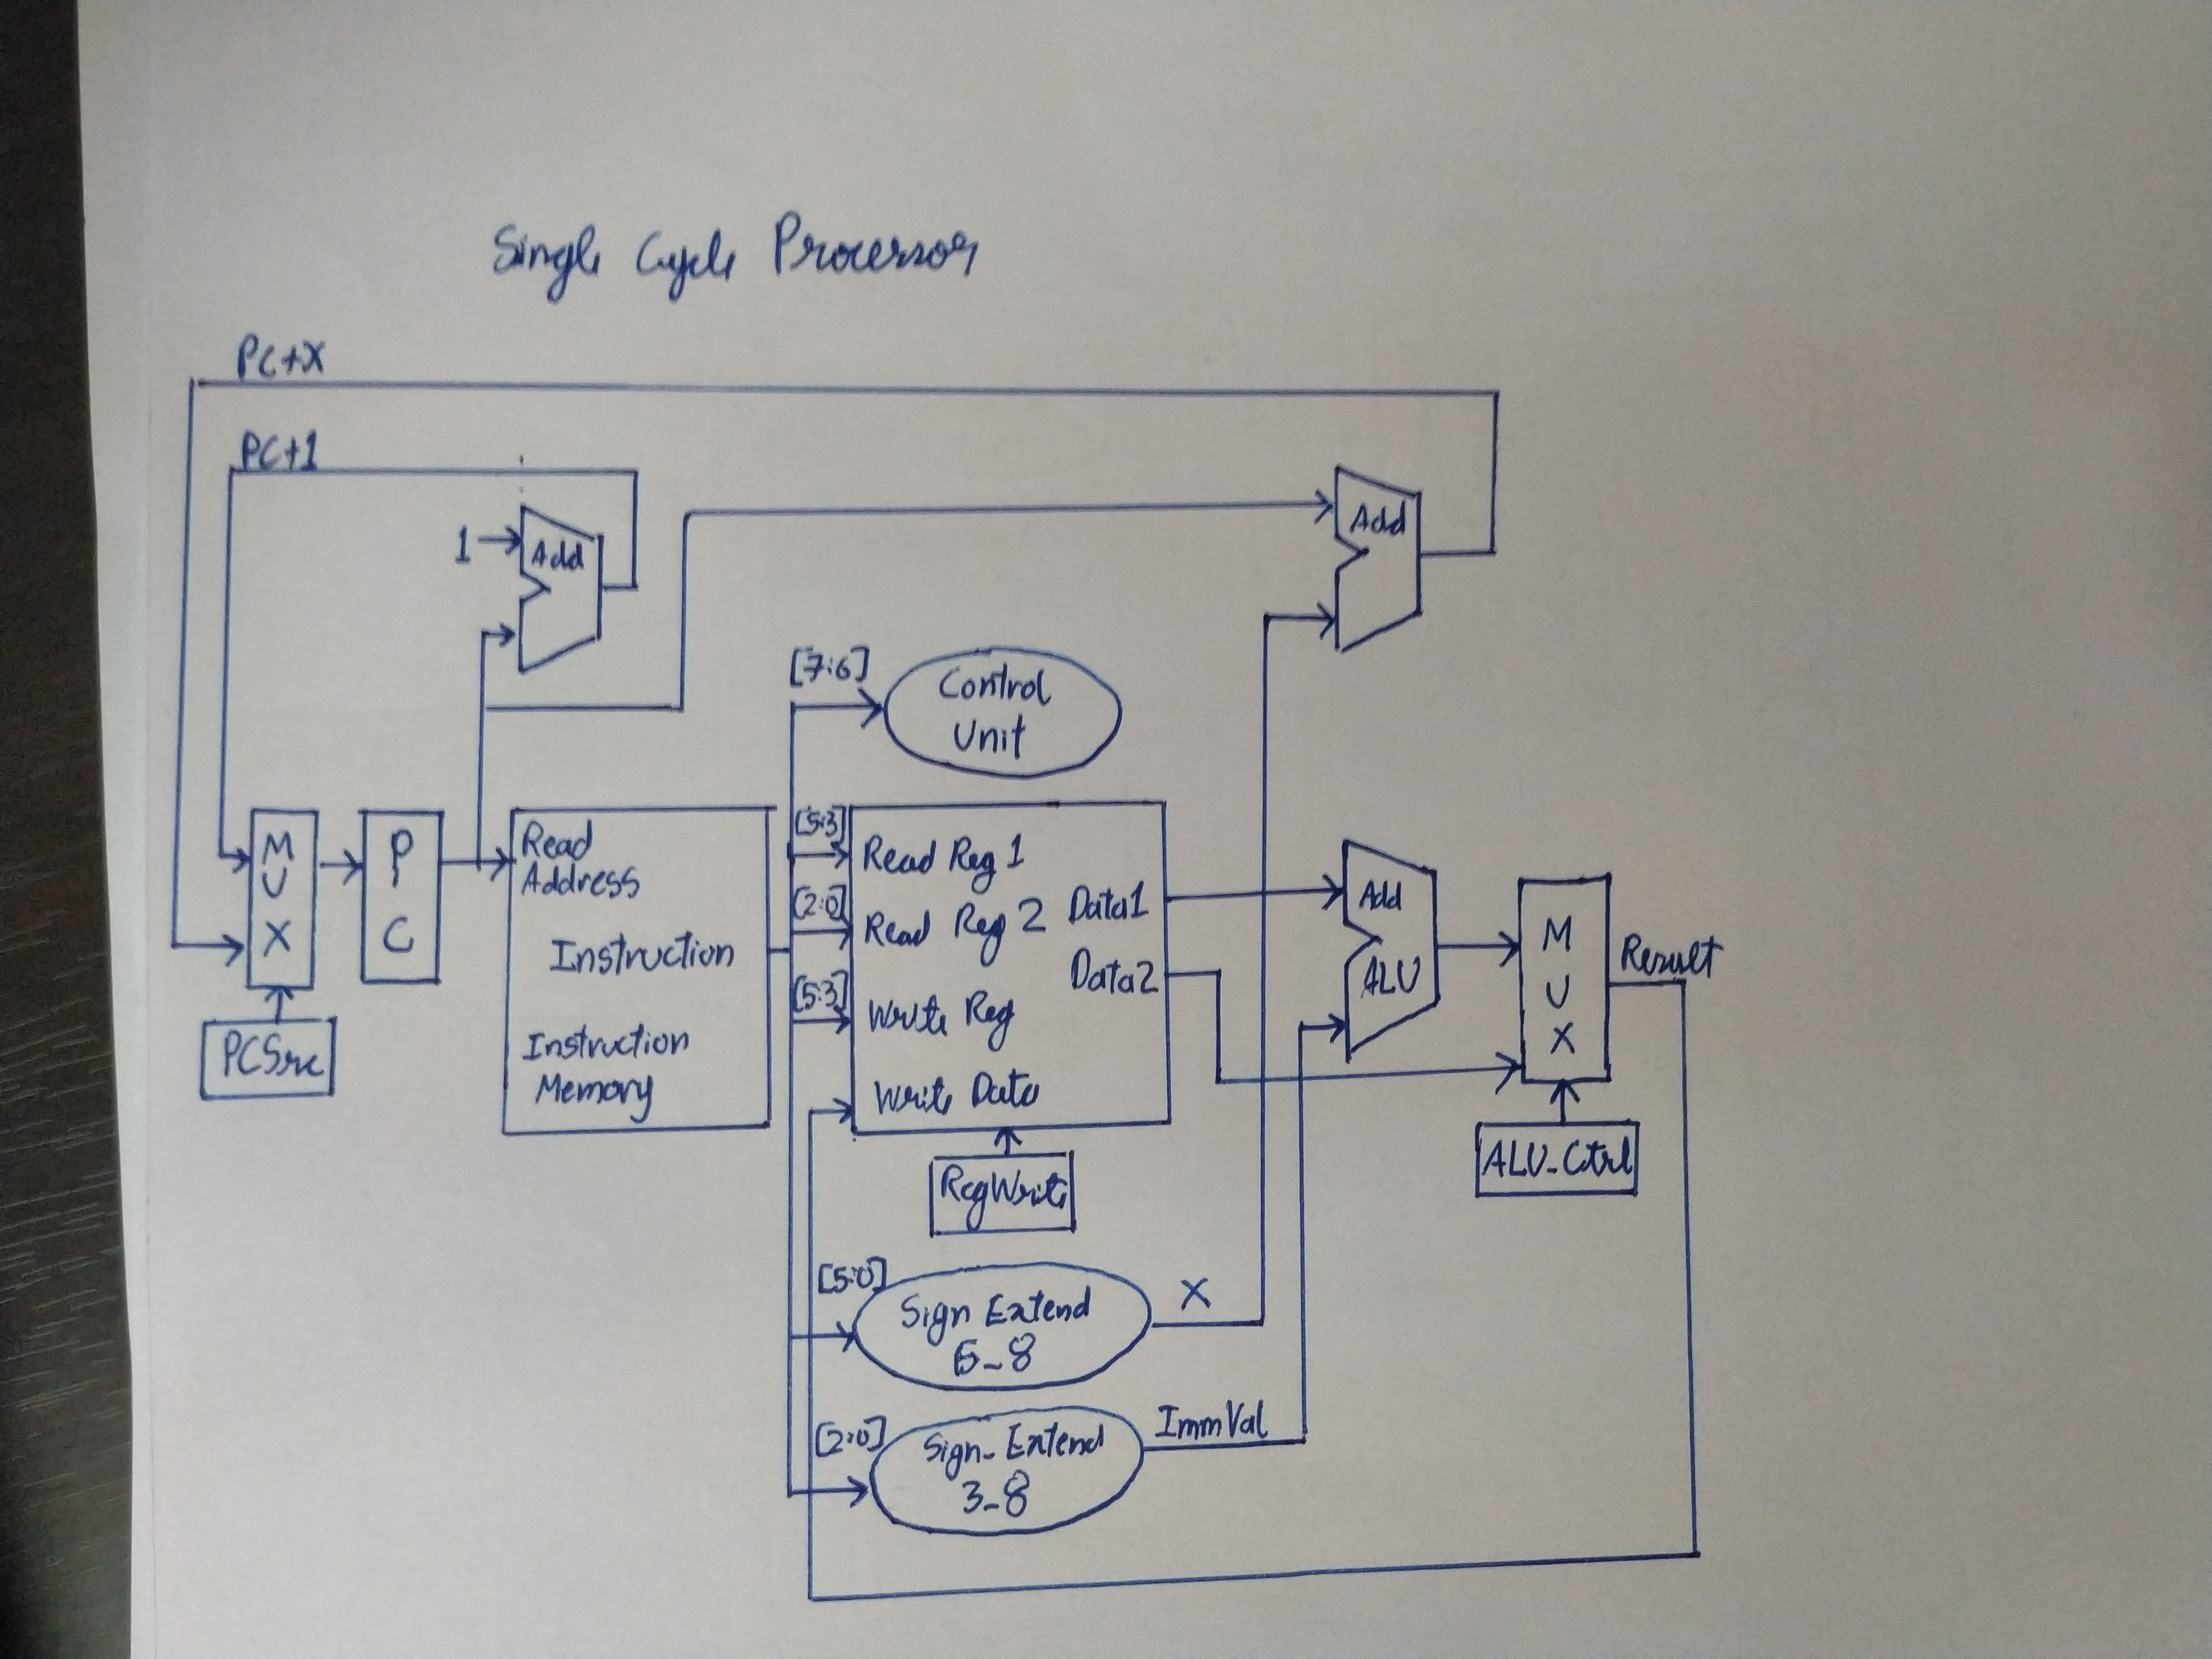 Single Cycle Processor
PC+X
PC+1
1
Add
Add
[7:6]
Control
Unit
M
U
X
P
C
PCSrc
Read
Address
Instruction
Instruction
Memory
[5:3]
Read Reg 1
[2:0]
Read Reg 2
Data1
Data2
[5:3]
Write Reg
Write Data
RegWrite
Add
ALU
M
U
X
Result
ALU_Ctrl
[5:0]
Sign Extend
6_8
X
[2:0]
Sign_Extend
3_8
ImmVal